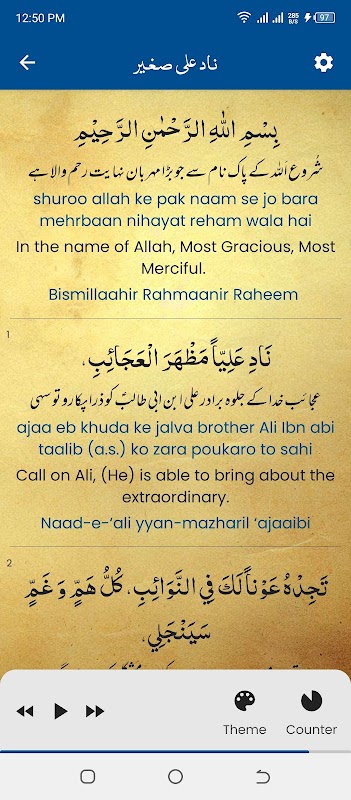 12:50 PM
285 B/S
97
ناد علی صغیر
بِسْمِ اللهِ الرَّحْمٰنِ الرَّحِيْمِ
شُروع اَللہ کے پاک نام سے جو بڑا مہربان نہایت رحم والا ہے
shuroo allah ke pak naam se jo bara
mehrbaan nihayat reham wala hai
In the name of Allah, Most Gracious, Most
Merciful.
Bismillaahir Rahmaanir Raheem
1
نَادِ عَلِيّاً مَظْهَرَ الْعَجَائِبِ،
عجائب خدا کے جلوہ برادر علی ابن ابی طالبؑ کو ذرا پکارو تو سہی
ajaa eb khuda ke jalva brother Ali Ibn abi
taalib (a.s.) ko zara poukaro to sahi
Call on Ali, (He) is able to bring about the
extraordinary.
Naad-e-‘ali yyan-mazharil ‘ajaaibi
2
تَجِدْهُ عَوْناً لَكَ فِي النَّوَائِبِ، كُلُّ هَمٍّ وَ غَمٍّ
سَيَنْجَلِي،
Theme
Counter